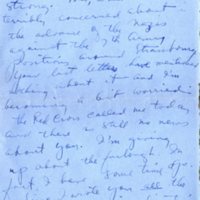 strong.
terribly concerned about
the advance of the Nazis
against the 7th Army
positions around Strasbourg
Your last letter have mentioned
nothing about it and I'm
becoming a bit worried.
the Red Cross called me today
and there is still no news
about you. I'm giving
up about the furlough. I'm
just I have some kind of
write you the